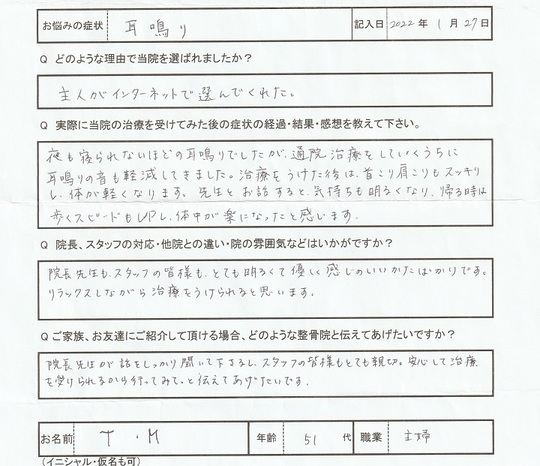 お悩みの症状 耳鳴り 記入日 2022年 1月 27日
Q どのような理由で当院を選ばれましたか？
主人がインターネットで選んでくれた。
Q 実際に当院の治療を受けてみた後の症状の経過・結果・感想を教えて下さい。
夜も寝られないほどの耳鳴りでしたが、通院治療をしていくうちに
耳鳴りの音も軽減してきました。治療をうけた後は、首こり肩こりもスッキリ
し、体が軽くなります。先生とお話すると、気持ちも明るくなり、帰る時は
歩くスピードもUPし、体中が楽になったと感じます。
Q 院長、スタッフの対応・他院との違い・院の雰囲気などはいかがですか？
院長先生も、スタッフの皆様も、とても明るくて優しく感じのいいかたばかりです。
リラックスしながら治療をうけられると思います。
Q ご家族、お友達にご紹介して頂ける場合、どのような整骨院と伝えてあげたいですか？
院長先生が話をしっかり聞いて下さるし、スタッフの皆様もとても親切。安心して治療
を受けられるから行ってみて。と伝えてあげたいです。
お名前 T・M 年齢 51 代 職業 主婦
(イニシャル・仮名も可)